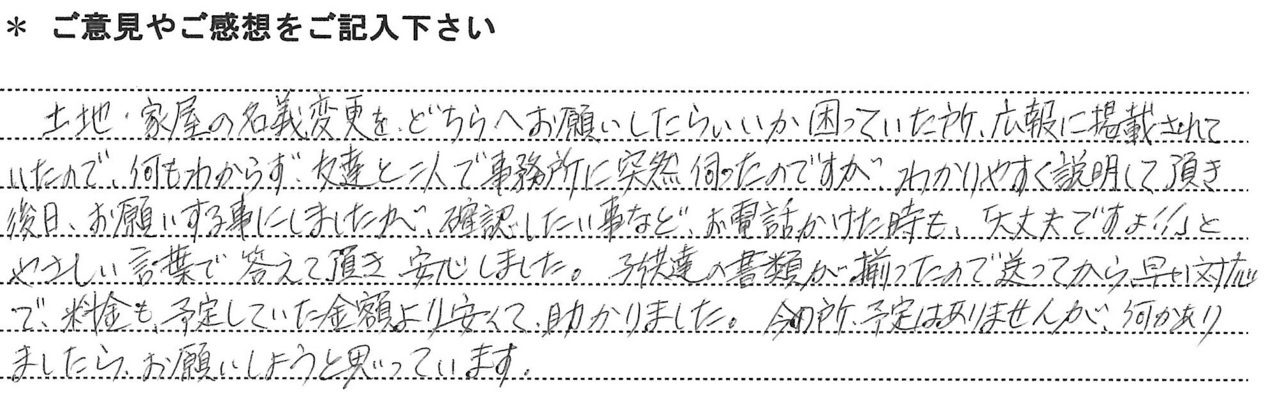 ＊ ご意見やご感想をご記入下さい
土地・家屋の名義変更を、どちらへお願いしたらいいか困っていた所、広報に掲載されて
いたので、何もわからず、友達と二人で事務所に突然伺ったのですが、わかりやすく説明して頂き
後日、お願いする事にしましたが、確認したい事など、お電話かけた時も、「大丈夫ですよ!!」と
やさしい言葉で答えて頂き安心しました。子供達の書類が揃ったので送ってから、早い対応
で、料金も、予定していた金額より安くて、助かりました。今の所、予定はありませんが、何かあり
ましたら、お願いしようと思っています。